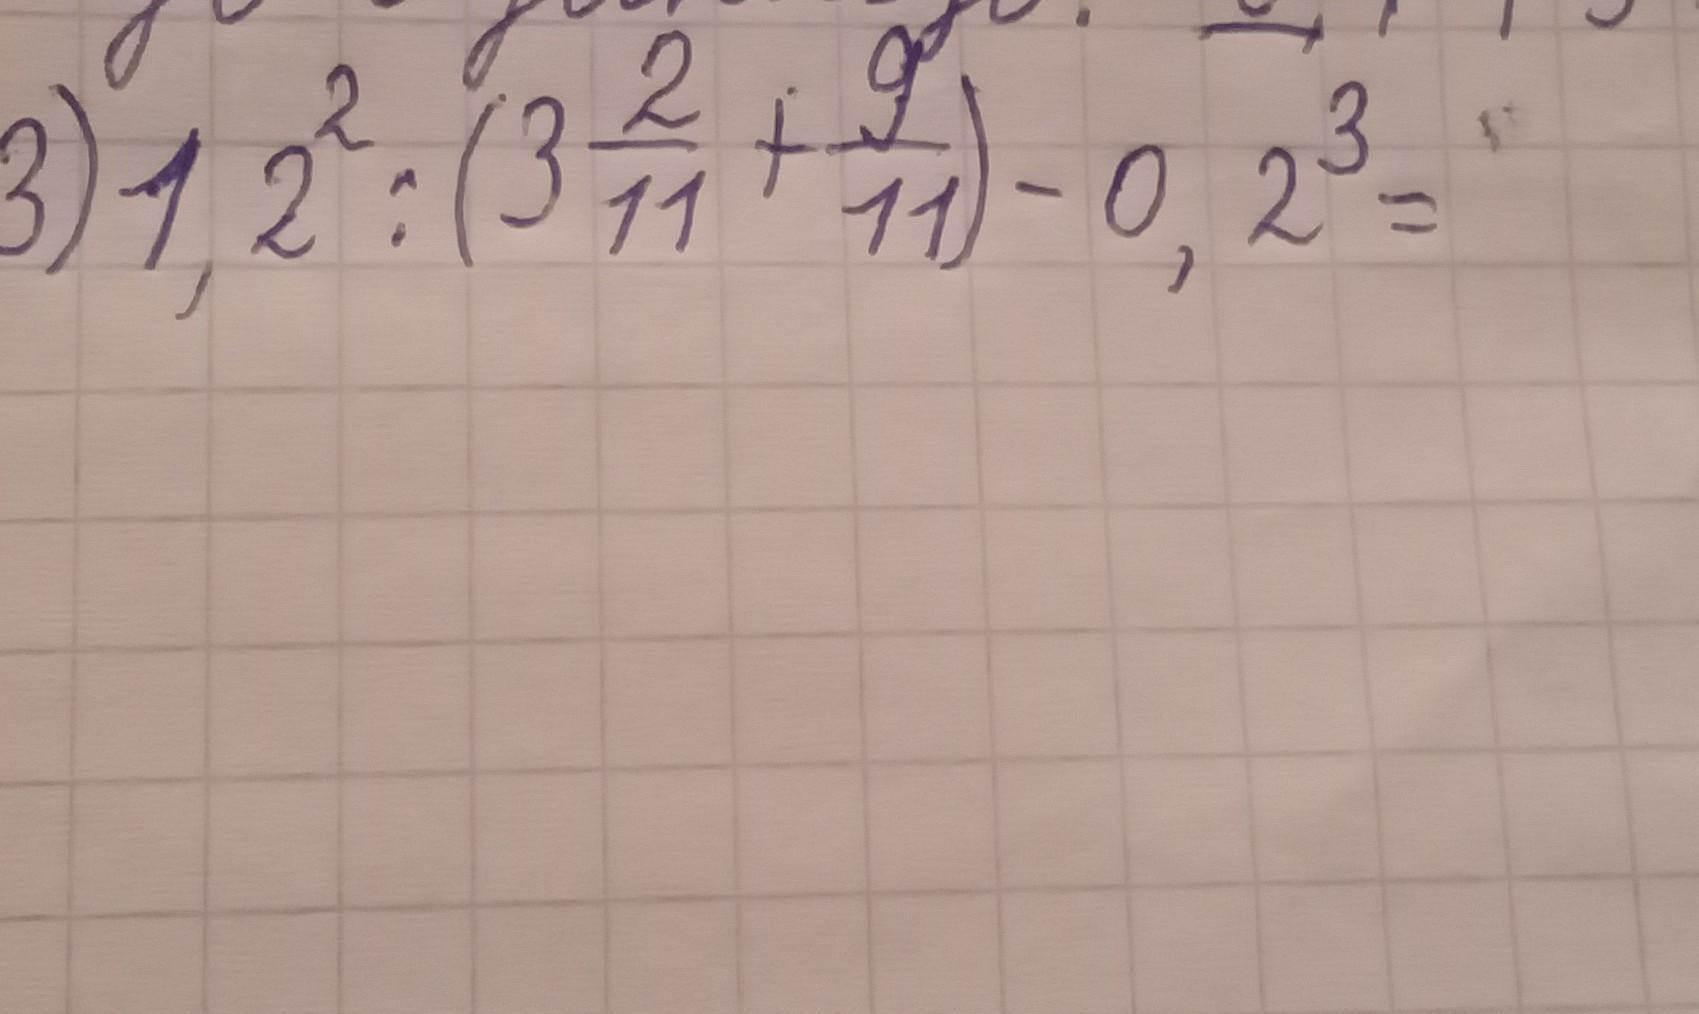 3) 1,2² : (3 2/11 + 9/11) - 0,2³ =